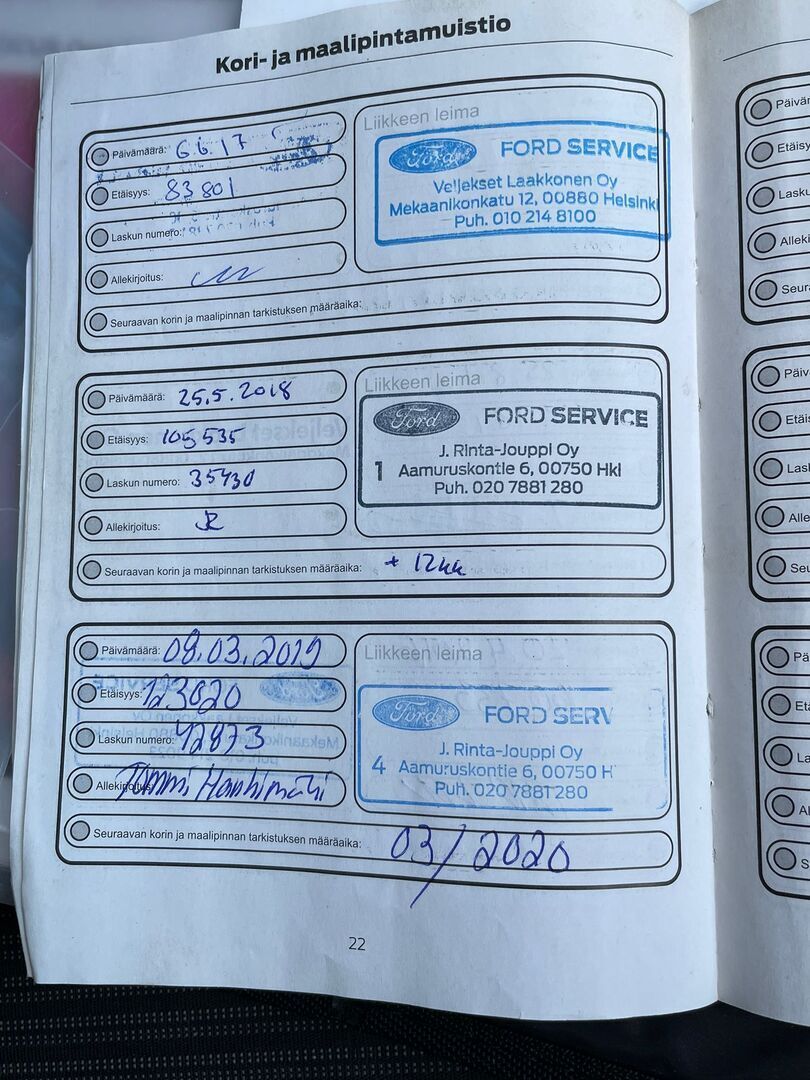 Kori- ja maalipintamuistio
Päivämäärä: 6.6.17
Etäisyys: 83801
Laskun numero:
Allekirjoitus:
Seuraavan korin ja maalipinnan tarkistuksen määräaika:
Liikkeen leima
Ford FORD SERVICE
Veljekset Laakkonen Oy
Mekaanikonkatu 12, 00880 Helsinki
Puh. 010 214 8100
Päivämäärä: 25.5.2018
Etäisyys: 105535
Laskun numero: 35430
Allekirjoitus:
Seuraavan korin ja maalipinnan tarkistuksen määräaika: + 12kk
Liikkeen leima
Ford FORD SERVICE
J. Rinta-Jouppi Oy
1 Aamuruskontie 6, 00750 Hki
Puh. 020 7881 280
Päivämäärä: 08.03.2019
Etäisyys: 123020
Laskun numero: 42873
Allekirjoitus: Tommi
Seuraavan korin ja maalipinnan tarkistuksen määräaika: 03/2020
Liikkeen leima
Ford FORD SERV
J. Rinta-Jouppi Oy
4 Aamuruskontie 6, 00750 H
Puh. 020 7881 280
22